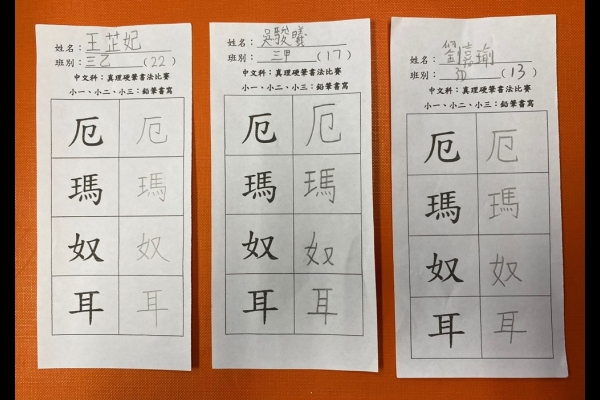 姓名：王芷妃
班別：三乙（22）
中文科：真理硬筆書法比賽
小一、小二、小三：鉛筆書寫
厄 厄
瑪 瑪
奴 奴
耳 耳
姓名：吳駿曦
班別：三甲（17）
中文科：真理硬筆書法比賽
小一、小二、小三：鉛筆書寫
厄 厄
瑪 瑪
奴 奴
耳 耳
姓名：劉嘉瑜
班別：3D（13）
中文科：真理硬筆書法比賽
小一、小二、小三：鉛筆書寫
厄 厄
瑪 瑪
奴 奴
耳 耳